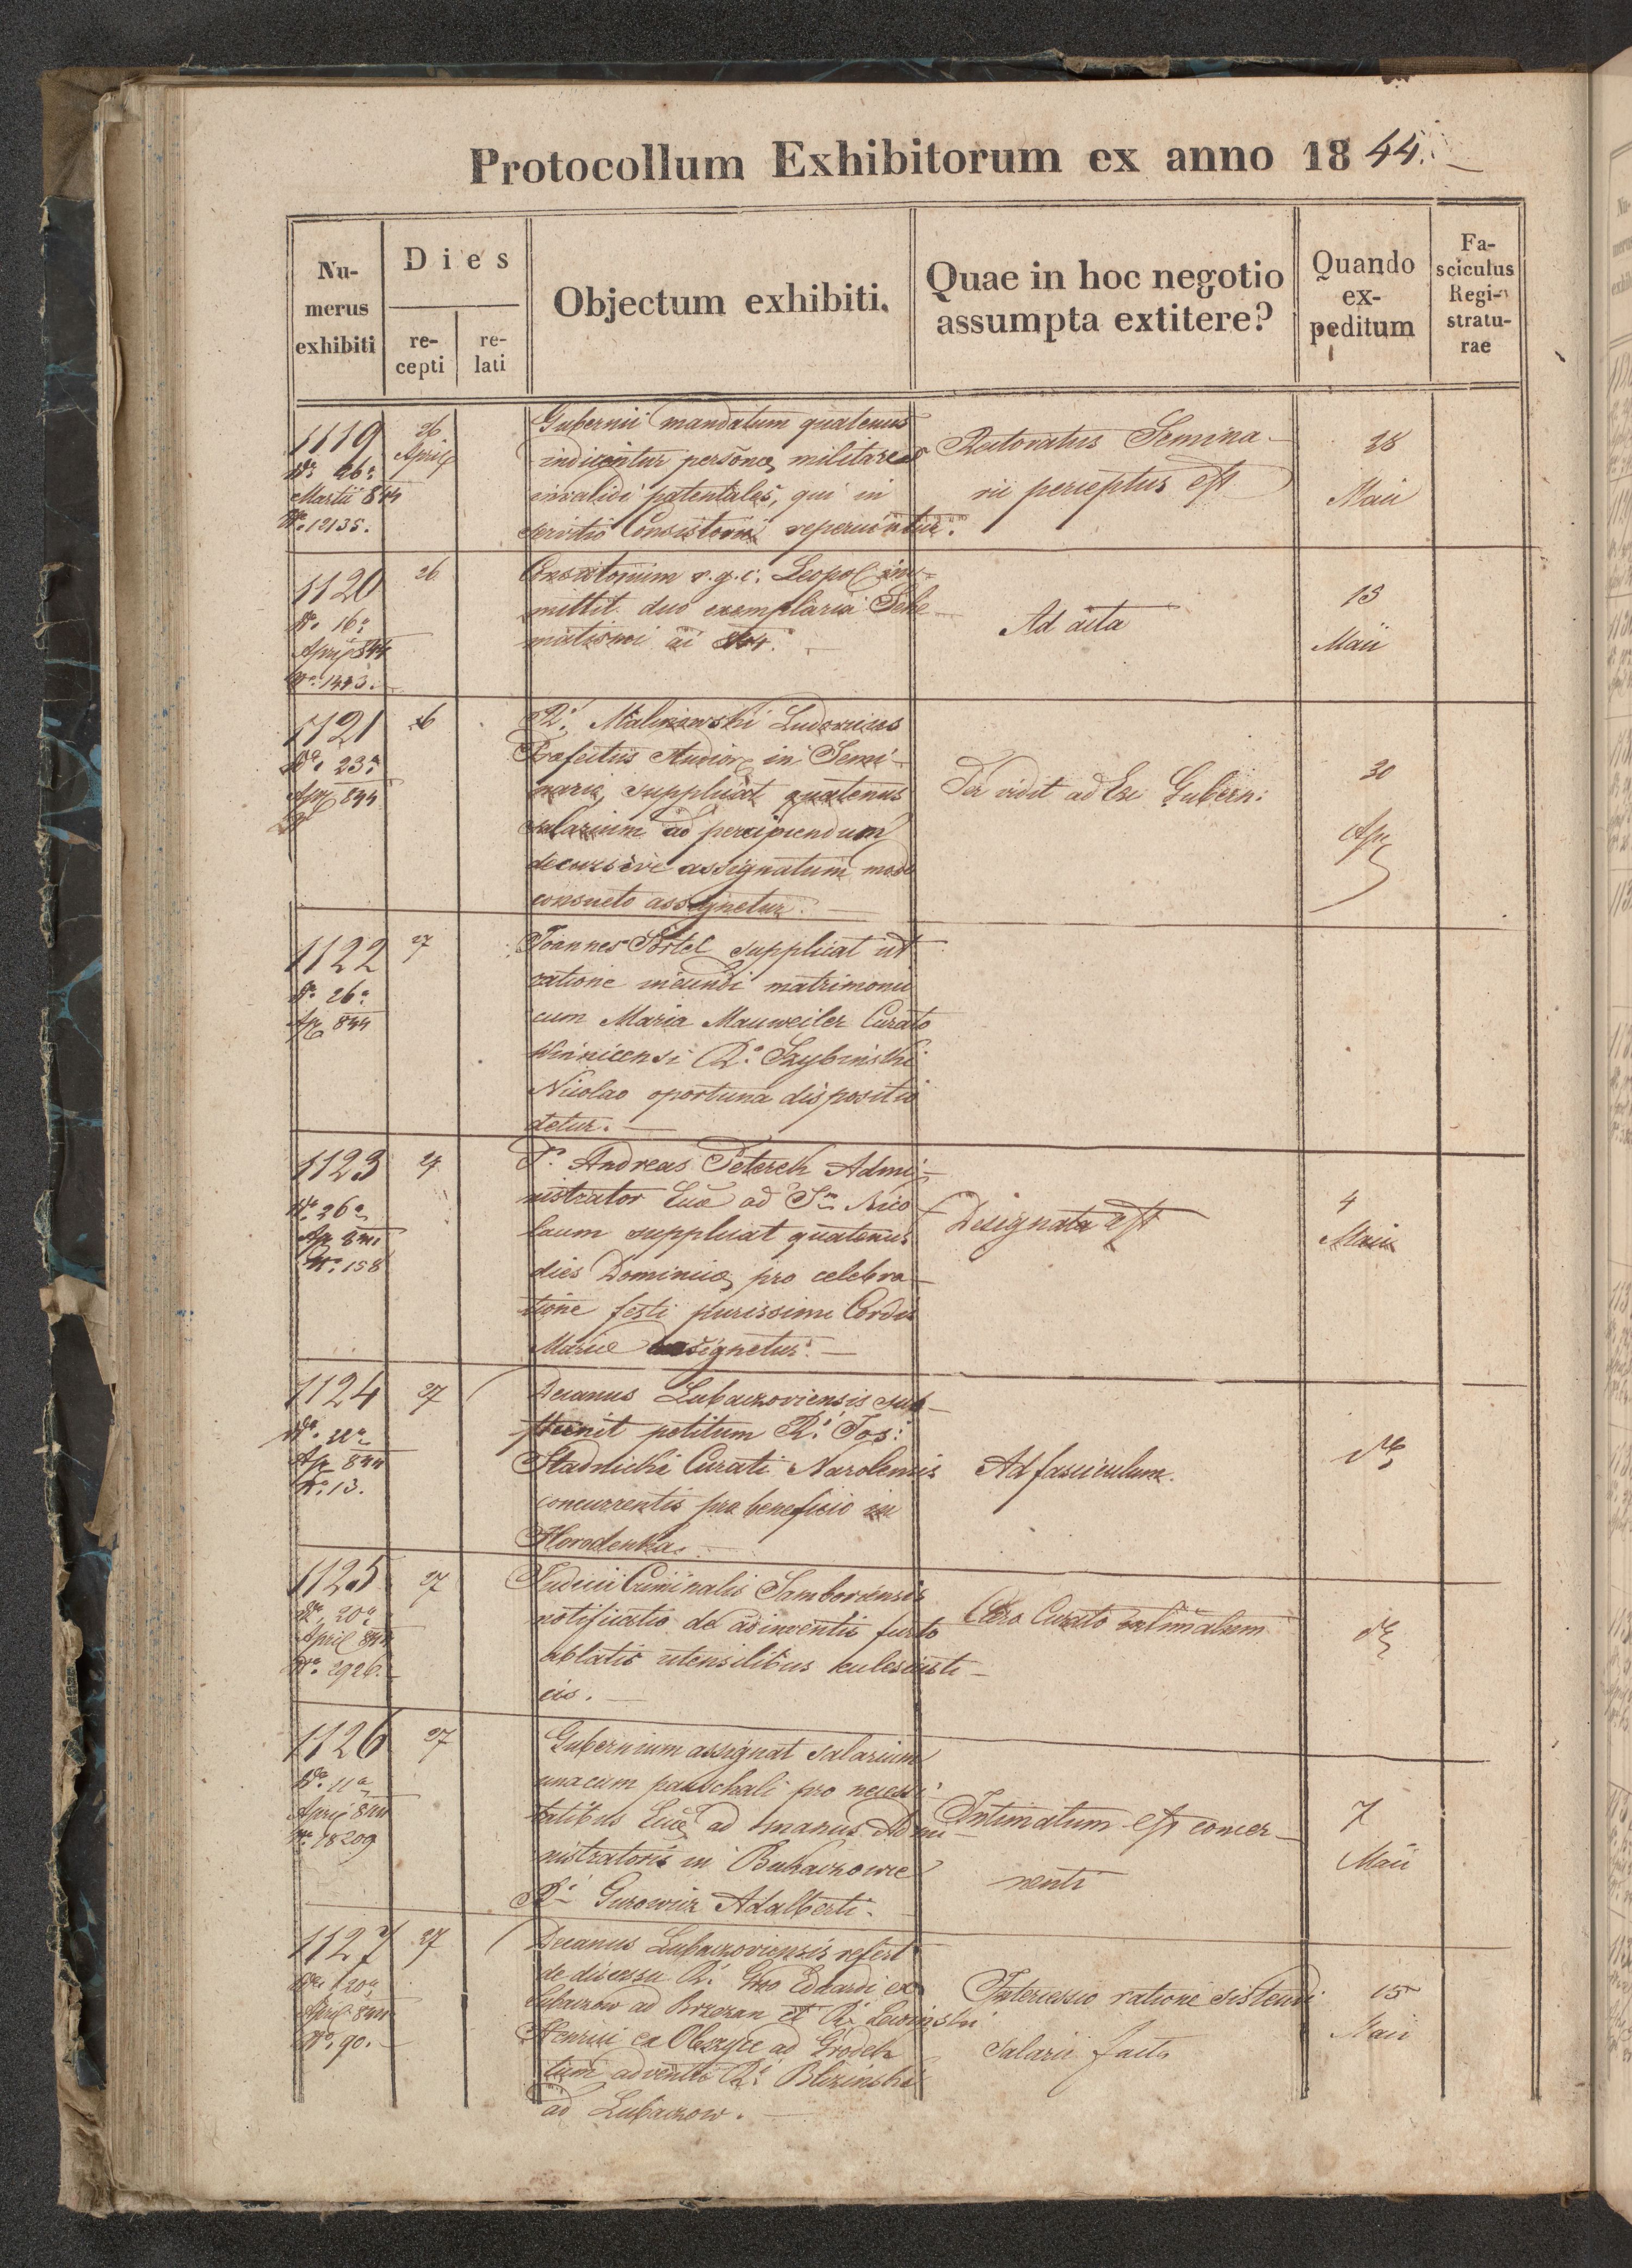 Protocollum Exhibitorum ex anno 1844.
Nu-
merus
exhibiti
Dies
re-
cepti
re-
lati
Objectum exhibiti.
Quae in hoc negotio
assumpta extitere?
Quando
ex-
peditum
Fa-
sciculus
Regi-
stratu-
rae
1119
26
April
Martii 844
No. 12135.
Gubernii mandatum quatenus
indicentur personae militares
invalidi patentales, qui in
servitio Consistorii reperiuntur.
Rectoratus Semina-
rii perceptus est
28
Maii
1120
26
16a
April 844
No. 1443.
Consistorium r. g. c. Leopol im-
mittit duo exemplaria Sche-
matismi ai 844.
Ad acta
13
Maii
1121
26
23a
Apr 844
R. Malinowski Ludovicus
Praefectus Studior in Semi-
nario, supplicat quatenus
salarium ad percipiendum
decursive assignatum modo
consueto assignetur.
Per vidit ad Exc Gubern:
30
Apr
1122
27
26a
Ap 844
Joannes Portel supplicat ut
ratione ineundi matrimonii
cum Maria Mauweiler Curato
Winnicensi R. Skybinski
Nicolao oportuna dispositio
detur.
1123
27
26a
Ap 844
No. 158
P. Andreas Peterek Admi-
nistrator Eccae ad Sm Nico-
laum supplicat quatenus
dies Dominica pro celebra-
tione festi purissimi Cordis
Mariae assignetur.
Designata est
4
Maii
1124
27
22a
Ap. 844
No. 13.
Decanus Lubaczoviensis sub-
sternit petitum R. Jos:
Stadnicki Curati Narolensis
concurrentis pro beneficio in
Horodenka.
Ad fasciculum.
1125
27
20a
April 844
No. 2926.
Judicii Criminalis Samboriensis
notificatio de adinventis furto
ablatis utensilibus eclesiasti-
cis.
Clero Curato
1126
27
11a
April 844
No. 18209
Gubernium assignat salarium
unacum pauschali pro necessi-
tatibus Eccae ad manus Admi-
nistratoris in Bukaczowce
R. Gurowicz Adalberti.
Intimatum est concer-
nenti
7
Maii
1127
27
20a
April 844
No. 90.
Decanus Lubaczoviensis refert
de discessu R. Eduardi ex
Lubaczow ad Brzezan et R.
Henrici ex Oleszyce ad Grodek
tum adventu R. Blizinski
ad Lubaczow.
Intercessio ratione sistendi
salarii facta
15
Maii